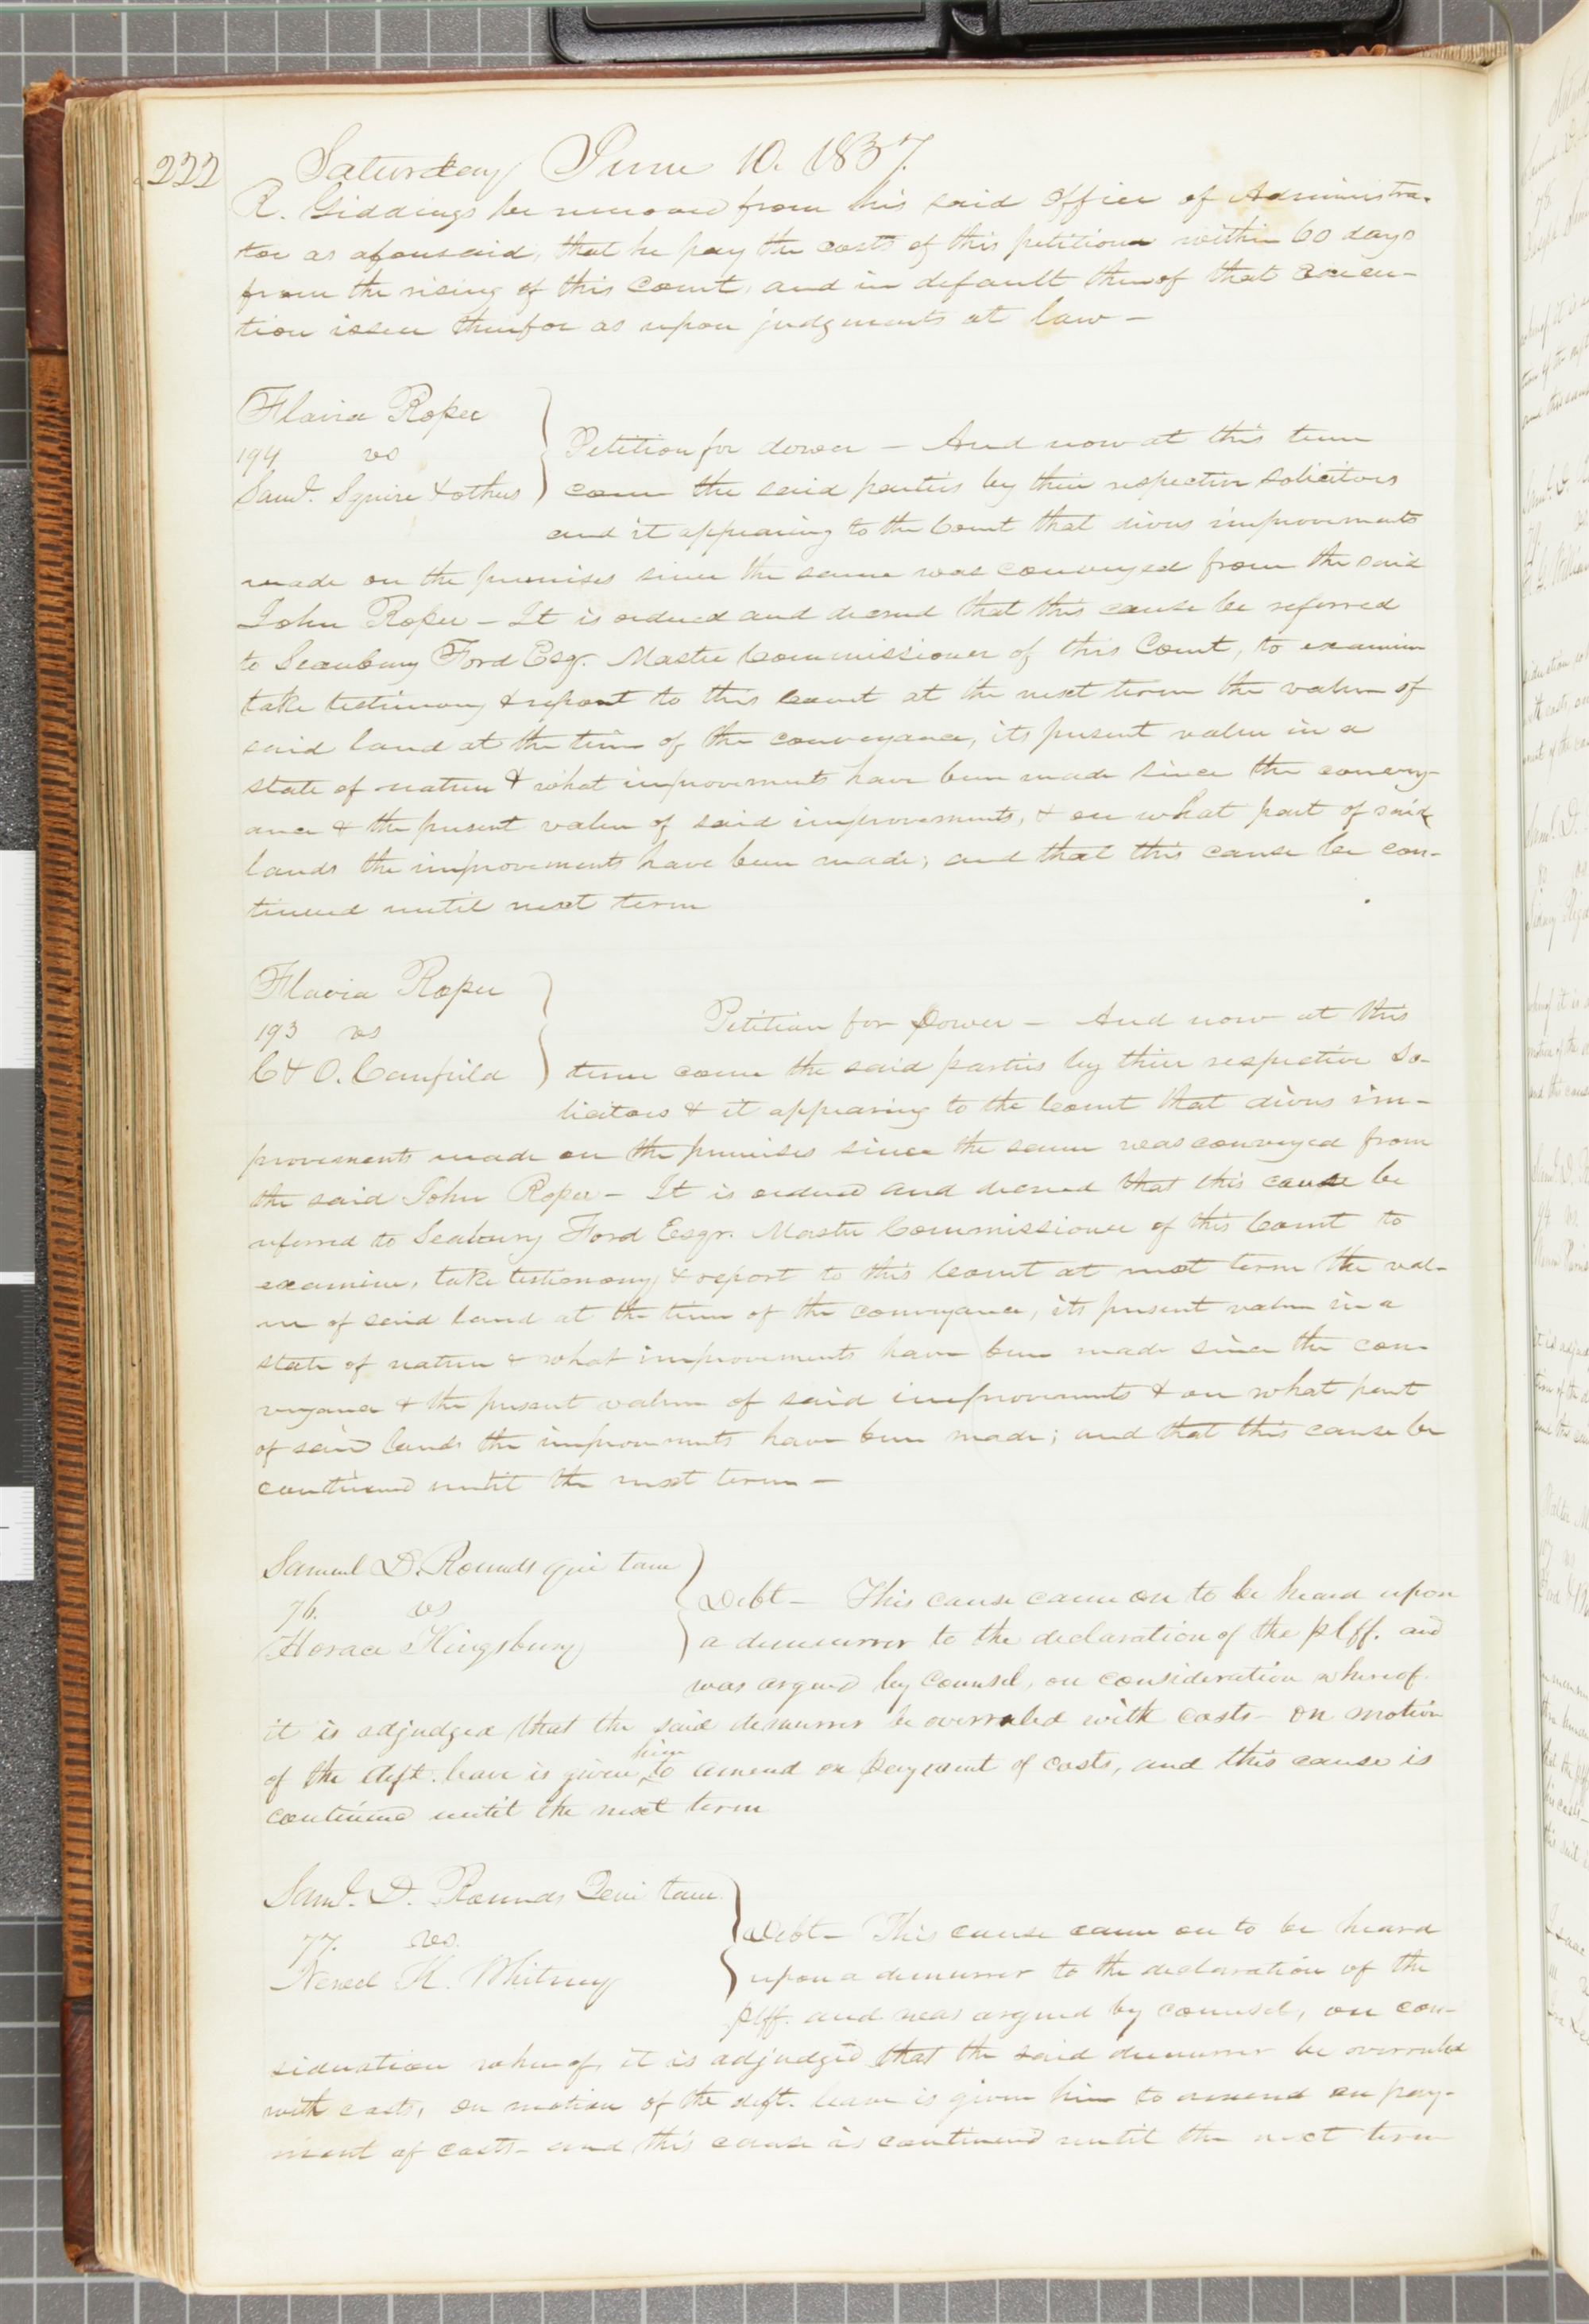 222 Saturday June 10. 1837.
R. Giddings be removed from his said Office of Administra-
tor as aforesaid, that he pay the costs of this petition within 60 days
from the rising of this Court, and in default thereof that Execu-
tion issue therefor as upon judgments at law -
Flavia Roper
194 vs
Saml. Squire & others
Petition for dower - And now at this term
come the said parties by their respective Solicitors
and it appearing to the Court that divers improvements
made on the premises since the same was conveyed from the said
John Roper - It is ordered and decreed that this cause be referred
to Seaubury Ford Esqr. Master Commissioner of this Court, to examine
take testimony & report to this Court at the next term the value of
said land at the time of the conveyance, its present value in a
state of nature & what improvements have been made since the convey-
ance & the present value of said improvements, & on what part of said
lands the improvements have been made; and that this cause be con-
tinued until next term
Flavia Roper
193 vs
C & O. Canfield
Petition for Dower - And now at this
term come the said parties by their respective So-
licitors & it appearing to the Court that divers im-
provements made on the premises since the same was conveyed from
the said John Roper - It is ordered and decreed that this cause be
referred to Seabury Ford Esqr. Master Commissioner of this Court to
examine, take testimony & report to this Court at next term the val-
ue of said land at the time of the conveyance, its present value in a
state of nature & what improvements have been made since the con-
veyance & the present value of said improvements & on what part
of said lands the improvements have been made; and that this cause be
continued until the next term -
Samuel D. Rounds qui tam
76. vs
Horace Kingsbury
Debt - This cause came on to be heard upon
a demurrer to the declaration of the plff. and
was argued by Counsel, on consideration whereof.
it is adjudged that the said demurrer be overruled with costs - On motion
of the deft. leave is given him to amend on payment of costs, and this cause is
continued until the next term
Saml. D. Rounds Qui tam
77. vs.
Newel K. Whitney
Debt - This cause came on to be heard
upon a demurrer to the declaration of the
plff. and was argued by counsel, on con-
sideration whereof, it is adjudged that the said demurrer be overruled
with costs, on motion of the deft. leave is given him to amend on pay-
ment of costs - and this cause is continued until the next term